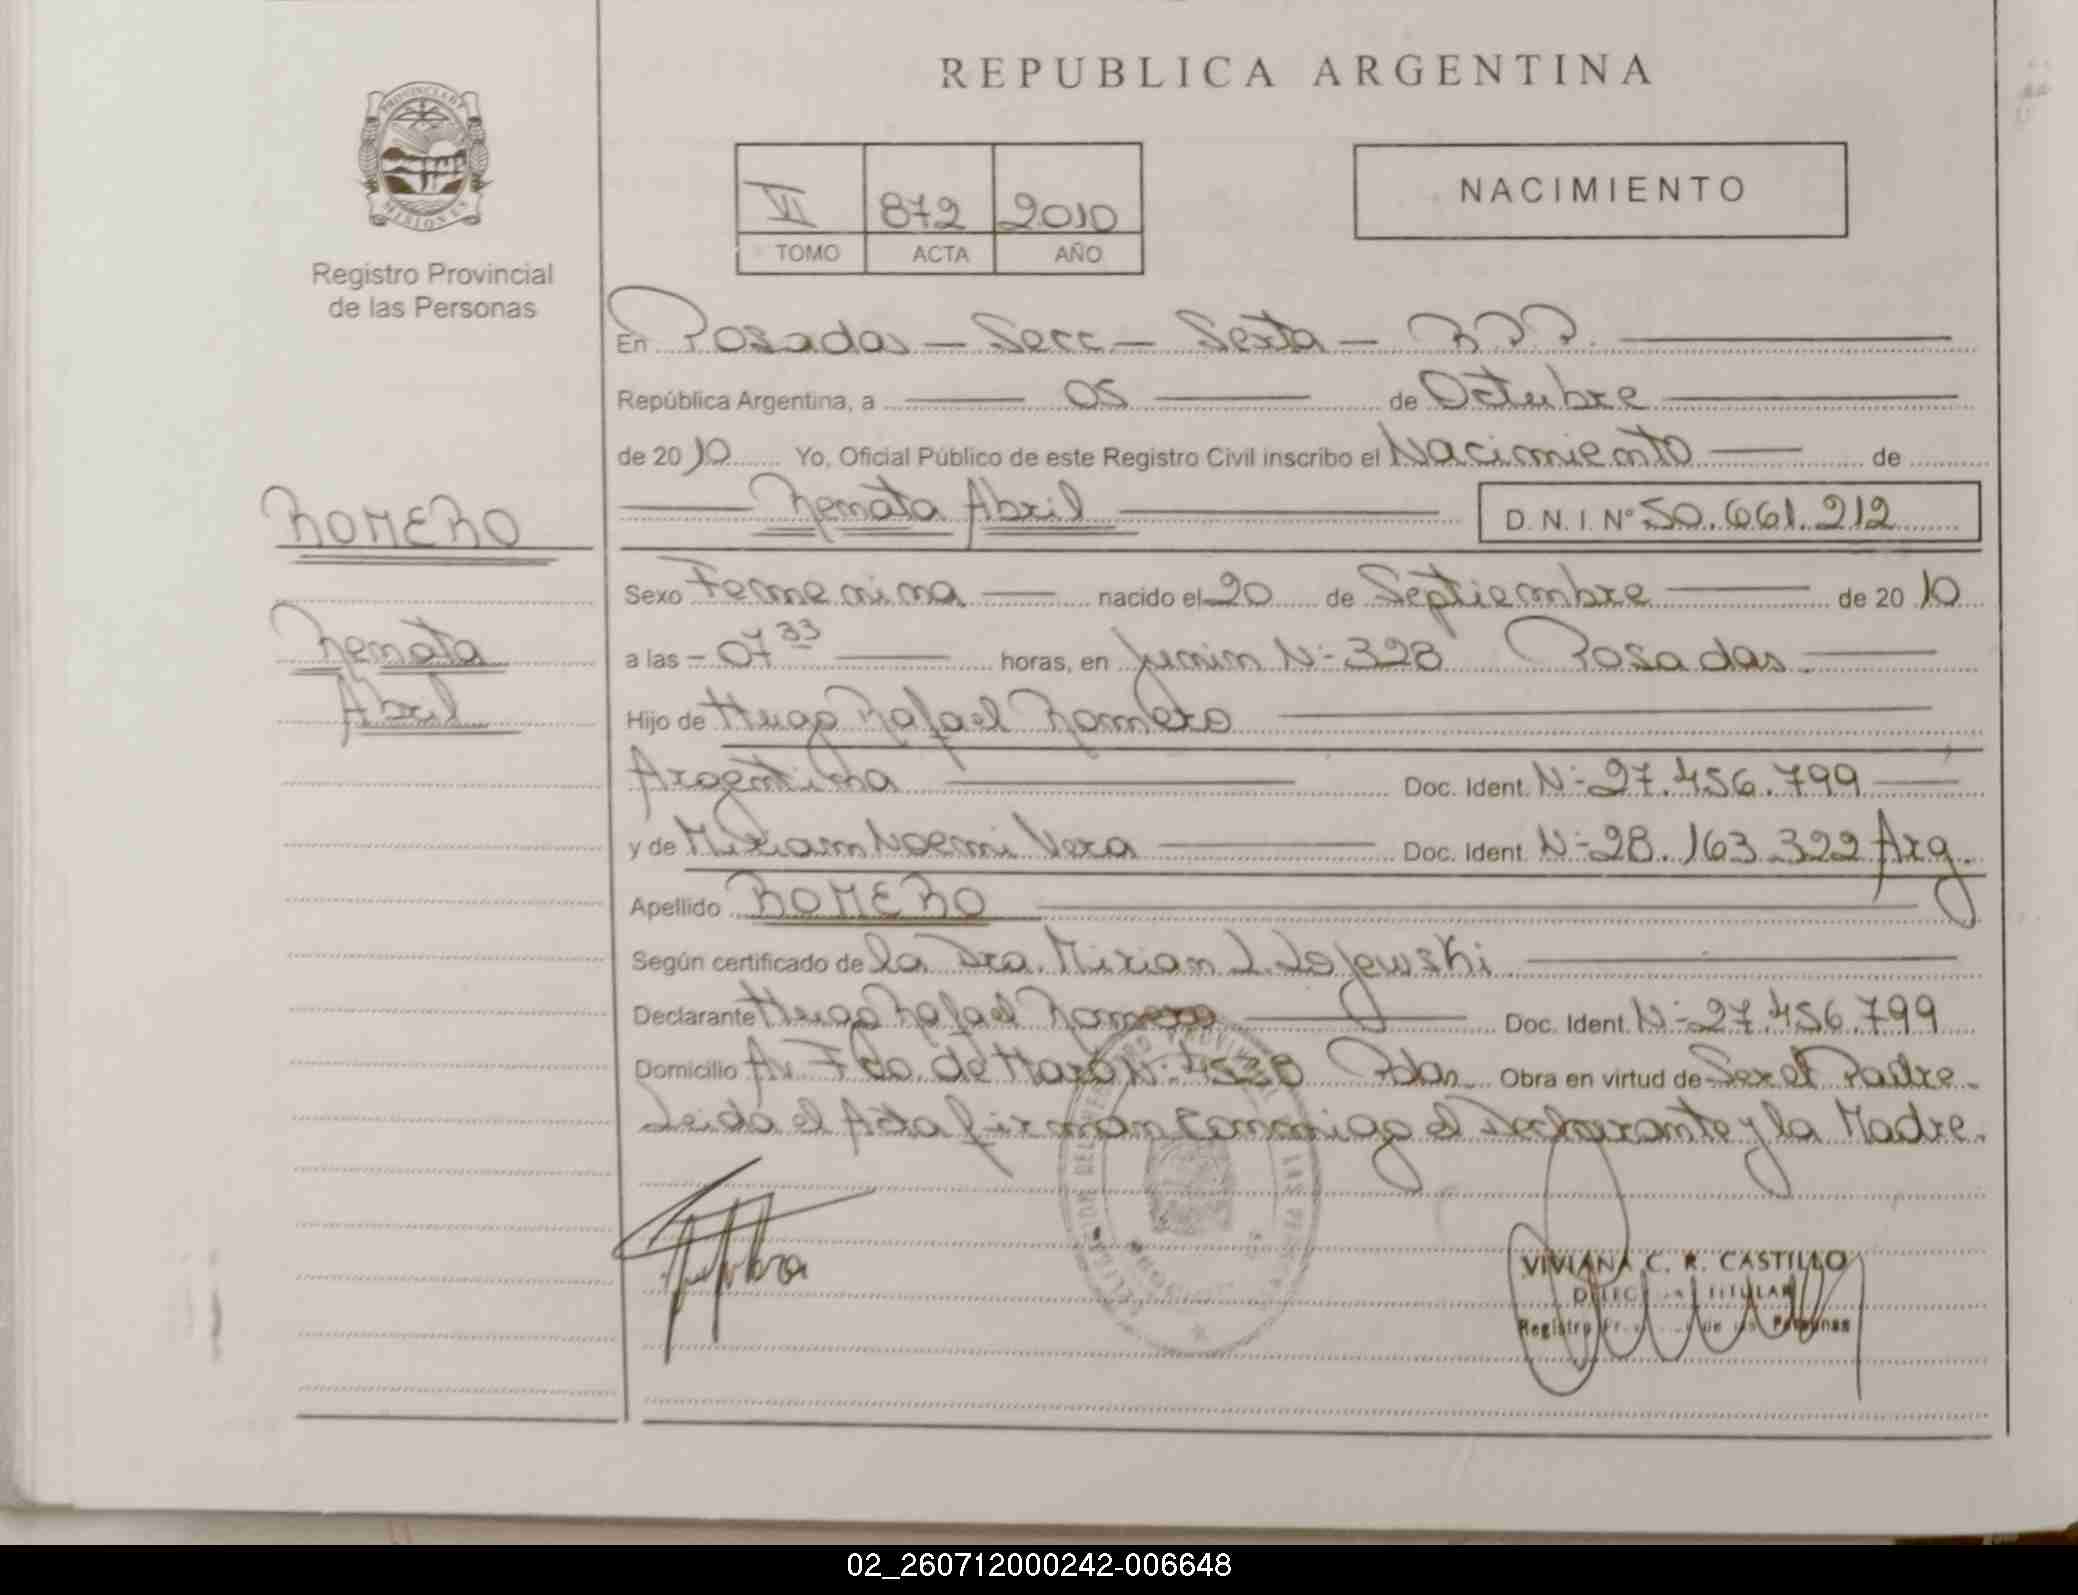 REPUBLICA ARGENTINA
PROVINCIA DE
MISIONES
Registro Provincial
de las Personas
VI 872 2010
TOMO ACTA AÑO
NACIMIENTO
En Posadas - Secc - Sexta - R.P.P.
República Argentina, a 05 de Octubre
de 2010 Yo, Oficial Público de este Registro Civil inscribo el Nacimiento de
Renata Abril D.N.I. Nº 50.661.212
ROMERO
Renata
Abril
Sexo Femenina nacido el 20 de Septiembre de 2010
a las - 07 33 horas, en Junin N- 328 Posadas.
Hijo de Hugo Rafael Romero
Argentina Doc. Ident. N- 27.456.799
y de Miriam Noemi Vera Doc. Ident. N- 28.163.322 Arg.
Apellido ROMERO
Según certificado de la Dra. Mirian L. Lojewski
Declarante Hugo Rafael Romero Doc. Ident. N- 27.456.799
Domicilio Av Fdo. de Haro N- Pdas. Obra en virtud de Ser el Padre.
Leida el Acta firman conmigo el Declarante y la Madre.
VIVIANA C. R. CASTILLO
TITULAR
Registro de las Personas
02_260712000242-006648